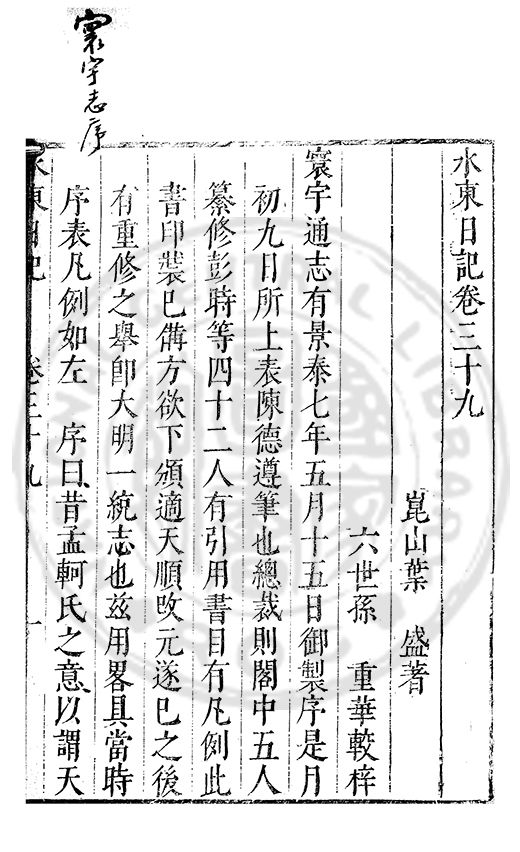 寰宇志序
水東日記卷三十九
崑山葉　盛著
六世孫　重華較梓
寰宇通志有景泰七年五月十五日御製序是月
初九日所上表陳德遵筆也總裁則閣中五人
纂修彭時等四十二人有引用書目有凡例此
書印裝已備方欲下頒適天順改元遂已之後
有重修之舉卽大明一統志也茲用畧具當時
序表凡例如左　序曰昔孟軻氏之意以謂天
水東日記　卷三十九　一